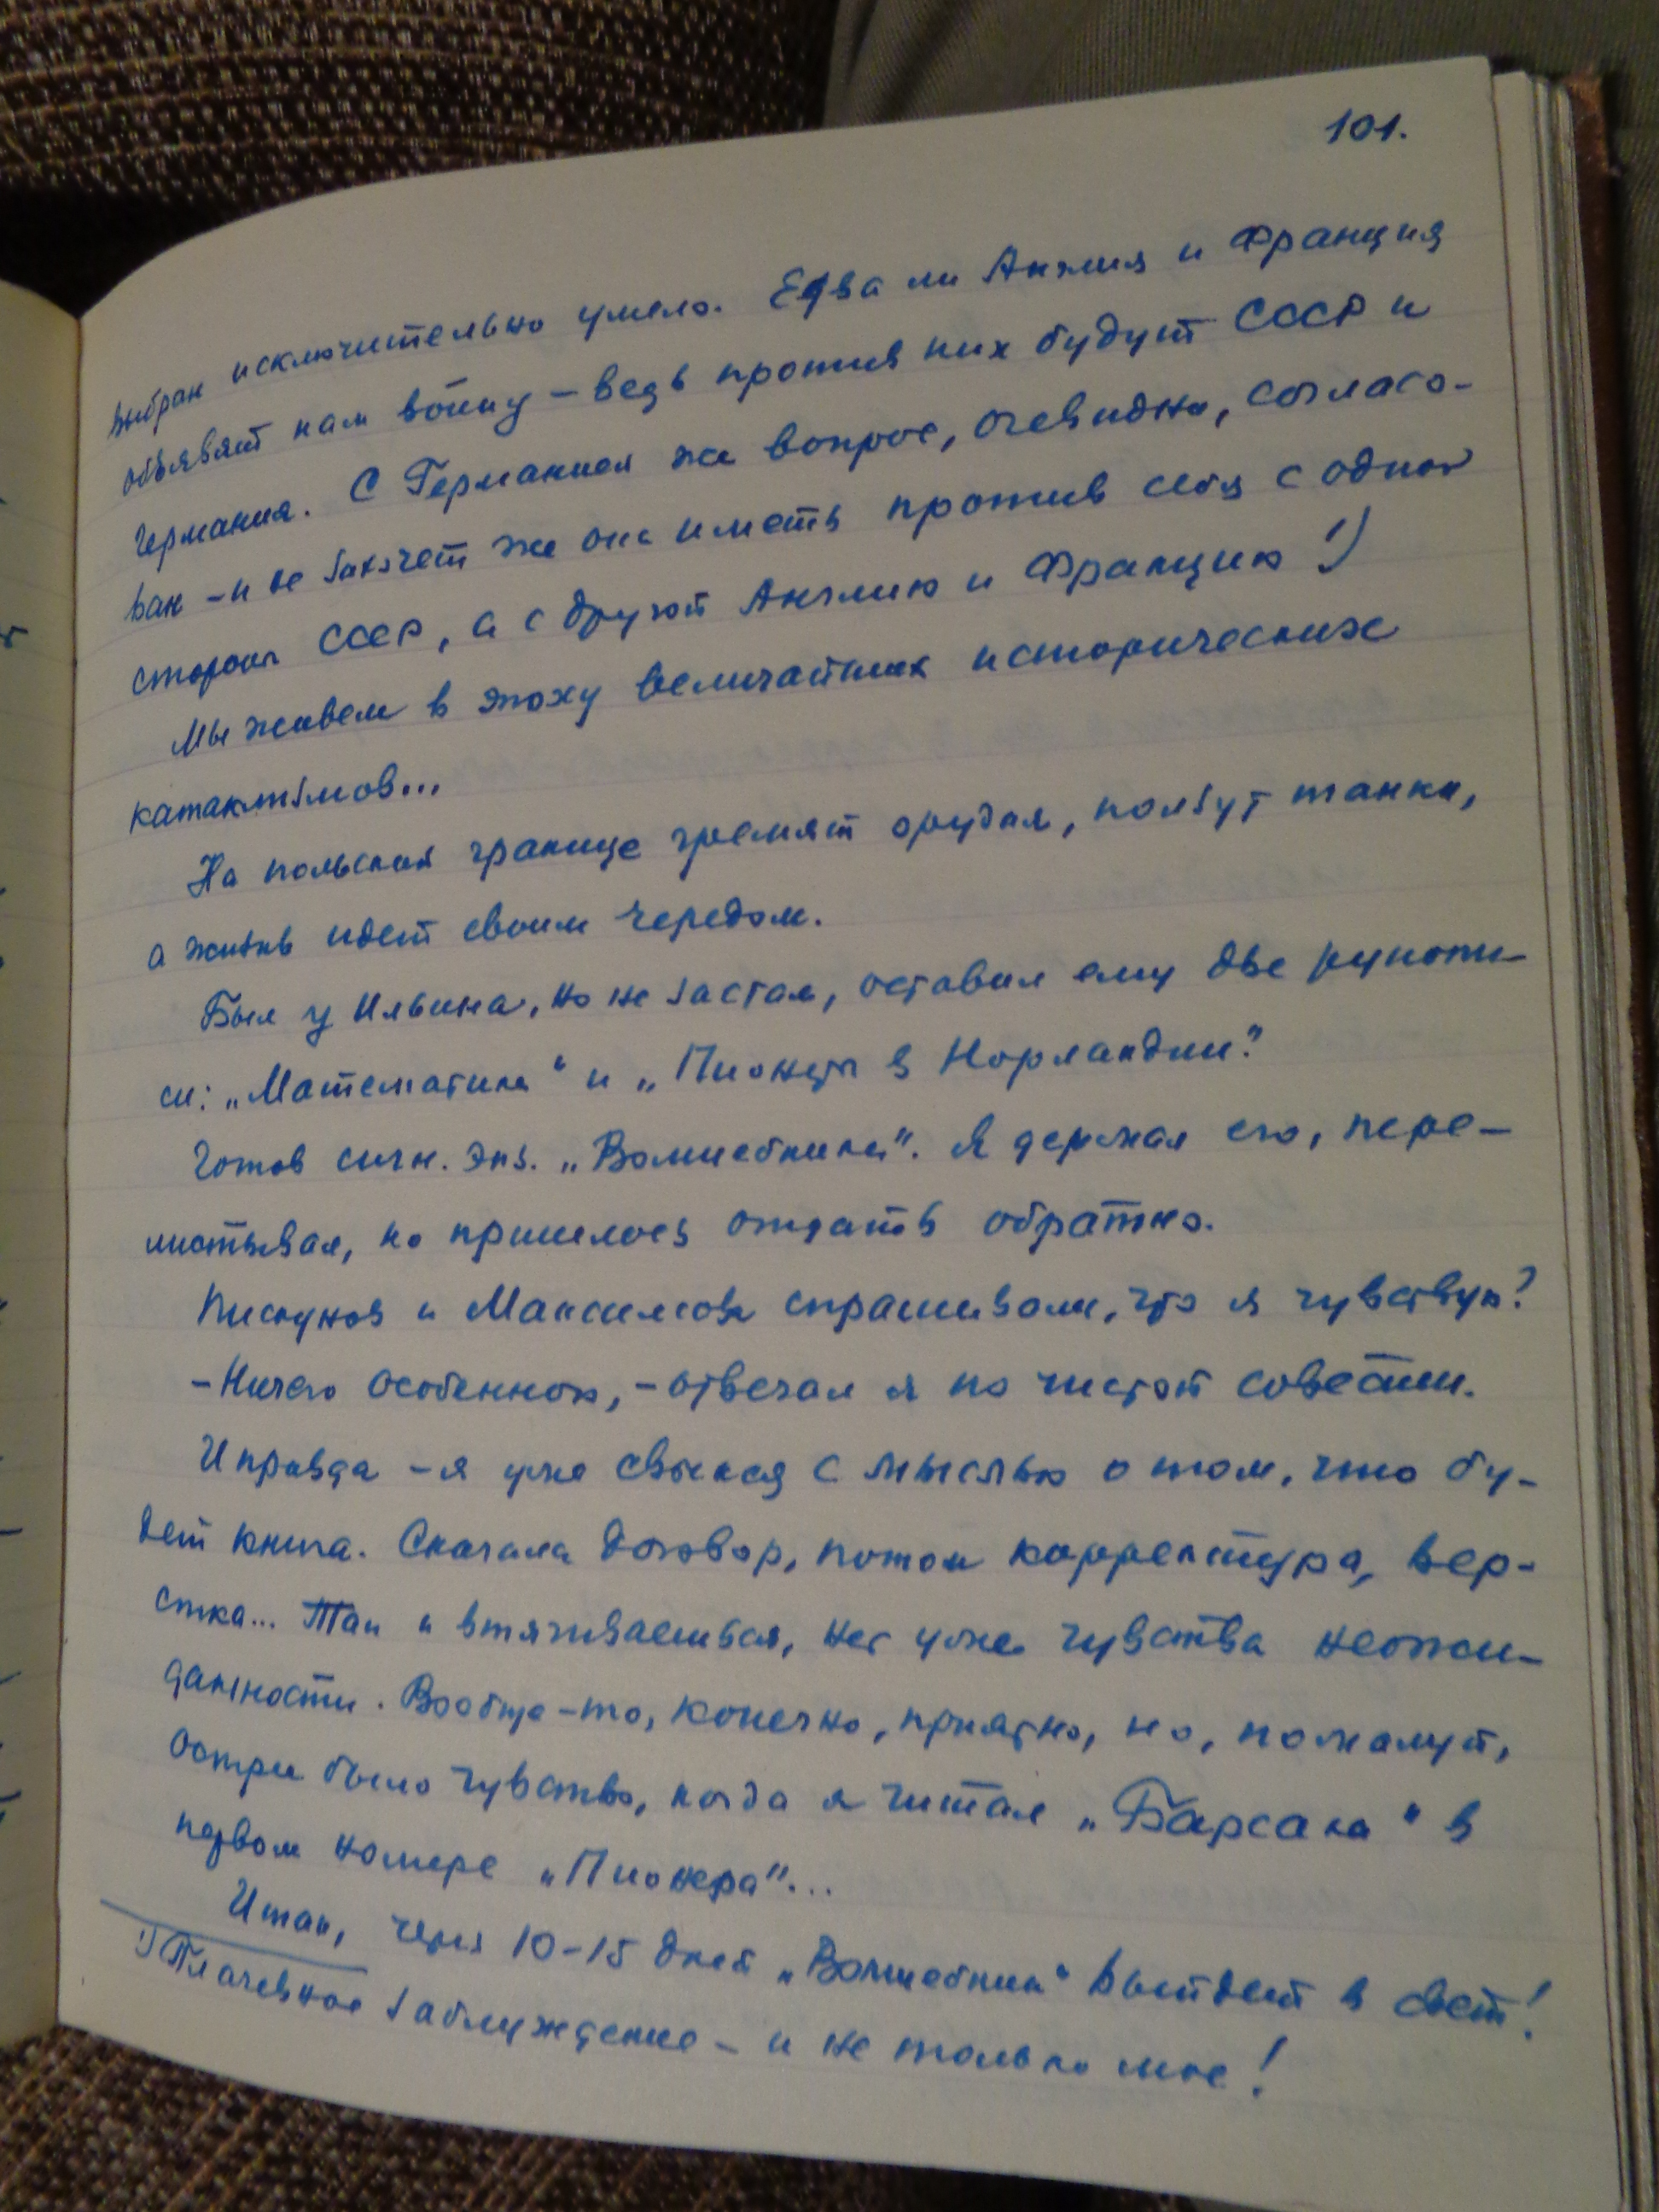 101.
выбран исключительно умело. Едва ли Англия и Франция
объявят нам войну – ведь против них будут СССР и
Германия. С Германией же вопрос, очевидно, согласо-
ван – и не захочет же она иметь против себя с одной
стороны СССР, а с другой Англию и Францию 1)
Мы живем в эпоху величайших исторических
катаклизмов...
На польской границе гремят орудия, ползут танки,
а жизнь идет своим чередом.
Был у Ильина, но не застал, оставил ему две рукопи-
си: „Математика" и „Пионеры в Норландии".
Готов сигн. экз. „Волшебника". Я держал его, пере-
листывал, но пришлось отдать обратно.
Пискунов и Максимова спрашивали, что я чувствую?
– Ничего особенного, – отвечал я по чистой совести.
И правда – я уже свыкся с мыслью о том, что бу-
дет книга. Сначала договор, потом корректура, вер-
стка... Так и втягиваешься, нет уже чувства неожи-
данности. Вообще-то, конечно, приятно, но, пожалуй,
острее было чувство, когда я читал „Барсака" в
первом номере „Пионера"...
Итак, через 10-15 дней „Волшебник" выйдет в свет!
1) Плачевное заблуждение – и не только мое!